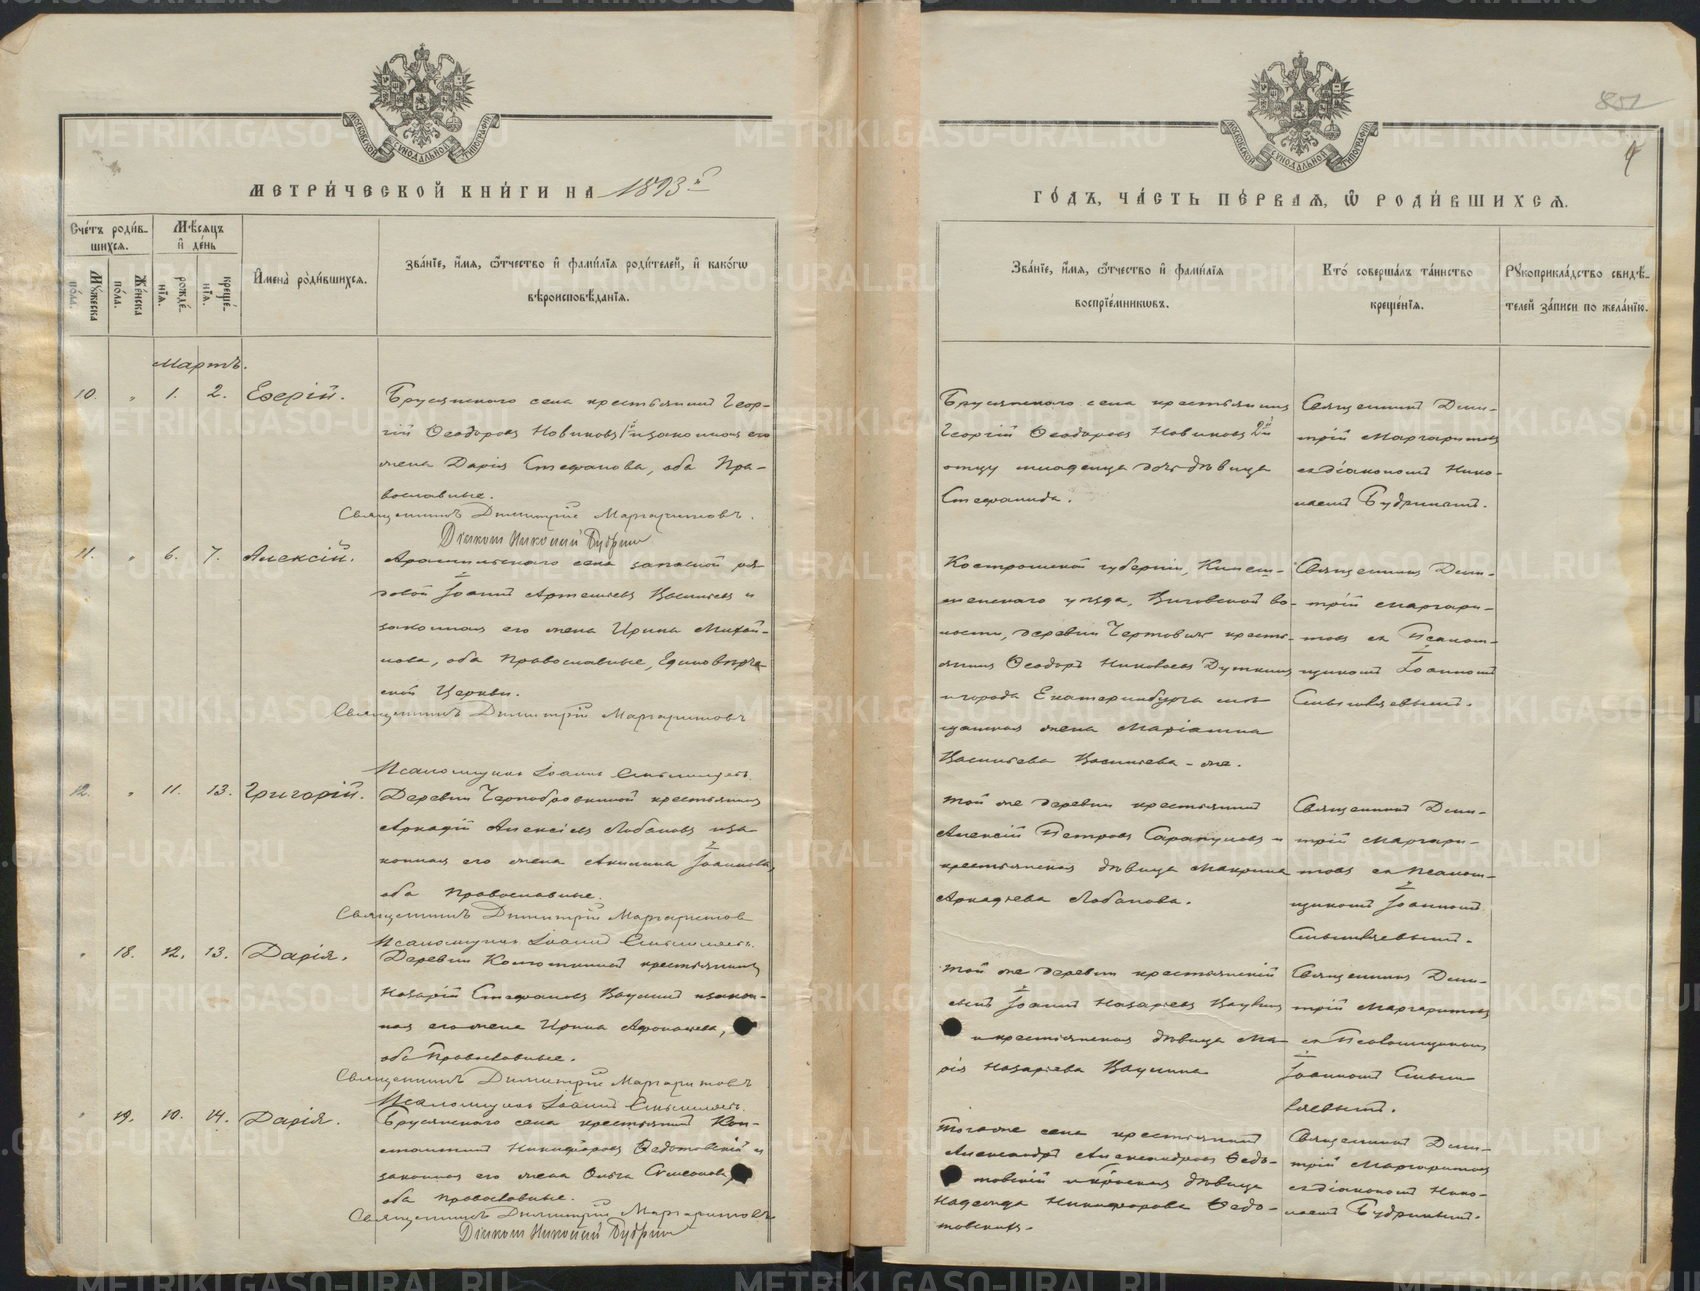 МЕТРИ́ЧЕСКОЙ КНИ́ГИ НА 1893й
Сче́тъ роди́в-
шихся.
Мѣ́сяцъ
и҆ де́нь
Мꙋ́жеска
по́ла.
Же́нска
по́ла.
рожде́-
нїѧ.
креще́-
нїѧ.
И҆мена̀ роди́вшихсѧ.
Зва́нїе, и҆́мѧ, ѻ҆́тчество и҆ фами́лїѧ роди́телей, и҆ како́гѡ
вѣроисповѣ́данїѧ.
Мартъ.
10. „ 1. 2. Евѳерій.
Брусянского села крестьянинъ Геор-
гій Ѳеодоровъ Новиковъ и законная его
жена Дарія Стефанова, оба Пра-
вославные.
Священникъ Димитрій Маргаритовъ.
Діаконъ Николай Будринъ
11. „ 6. 7. Алексій.
Арамильского села запасной ря-
довой Іоаннъ Артемьевъ и
законная его жена Ирина Михай-
лова, оба Православные, Единовѣрче-
ской Церкви.
Священникъ Димитрій Маргаритовъ
Псаломщикъ Іоаннъ
12. „ 11. 13. Григорій.
Деревни Чернобровкиной крестьянинъ
Аркадій Алексѣевъ Лобановъ и за-
конная его жена Акилина Іоаннова,
оба Православные.
Священникъ Димитрій Маргаритовъ
Псаломщикъ Іоаннъ
„ 18. 12. 13. Дарія.
Деревни крестьянинъ
Назарій Стефановъ Ваулинъ и закон-
ная его жена Ирина Афонасьева,
оба Православные.
Священникъ Димитрій Маргаритовъ
Псаломщикъ Іоаннъ
„ 19. 10. 14. Дарія.
Брусянского села крестьянинъ Кон-
стантинъ Никифоровъ Ѳедотовскій и
законная его жена Ольга Симеонова,
оба Православные.
Священникъ Димитрій Маргаритовъ
Діаконъ Николай Будринъ
ГО́ДЪ, ЧА́СТЬ ПЕ́РВАѦ, Ѽ РОДИ́ВШИХСѦ.
Зва́нїе, и҆́мѧ, ѻ҆́тчество и҆ фами́лїѧ
воспрїе́мникѡвъ.
Кто̀ соверша́лъ та́инство
креще́нїѧ.
Рꙋкоприкла́дство свидѣ́-
телей за́писи по жела́нїю.
Брусянского села крестьянинъ
Георгій Ѳеодоровъ Новиковъ 2й
отцу младенца дочь дѣвица
Стефанида.
Священникъ Дми-
трій Маргаритовъ
съ діакономъ Нико-
лаемъ Будринымъ.
Костромской губерніи, Кинеш-
менского уѣзда, во-
лости, деревни кресть-
янинъ Ѳеодоръ
и города Екатеринбурга мѣ-
щанская жена Маріанна
Васильева Васильева-же.
Священникъ Дми-
трій Маргари-
товъ съ Псалом-
щикомъ Іоанномъ
Той же деревни крестьянинъ
Алексій Петровъ Сарапуловъ и
крестьянская дѣвица Макрина
Аркадьева Лобанова.
Священникъ Дми-
трій Маргари-
товъ съ Псалом-
щикомъ Іоанномъ
Той же деревни крестьянскій
сынъ Іоаннъ Назарьевъ Ваулинъ
и крестьянская дѣвица Ма-
рія Назарьева Ваулина
Священникъ Дми-
трій Маргаритовъ
съ Псаломщикомъ
Іоанномъ
Того же села крестьянинъ
Александръ Александровъ Ѳедо-
товскій и дѣвица
Надежда Никифорова Ѳедо-
товскихъ.
Священникъ Дми-
трій Маргаритовъ
съ діакономъ Нико-
лаемъ Будринымъ.